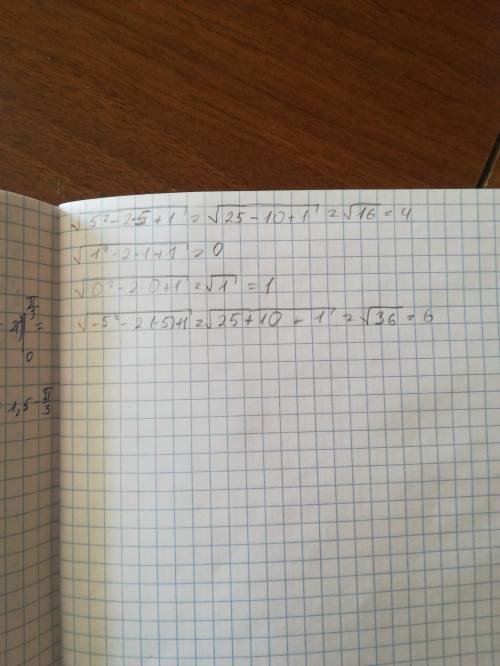 √5² - 2·5 + 1 = √25 - 10 + 1 = √16 = 4
√1² - 2·1 + 1 = 0
√0² - 2·0 + 1 = √1 = 1
√-5² - 2(-5) + 1 = √25 + 10 + 1 = √36 = 6
π/3
=
0
1,5 - π/3